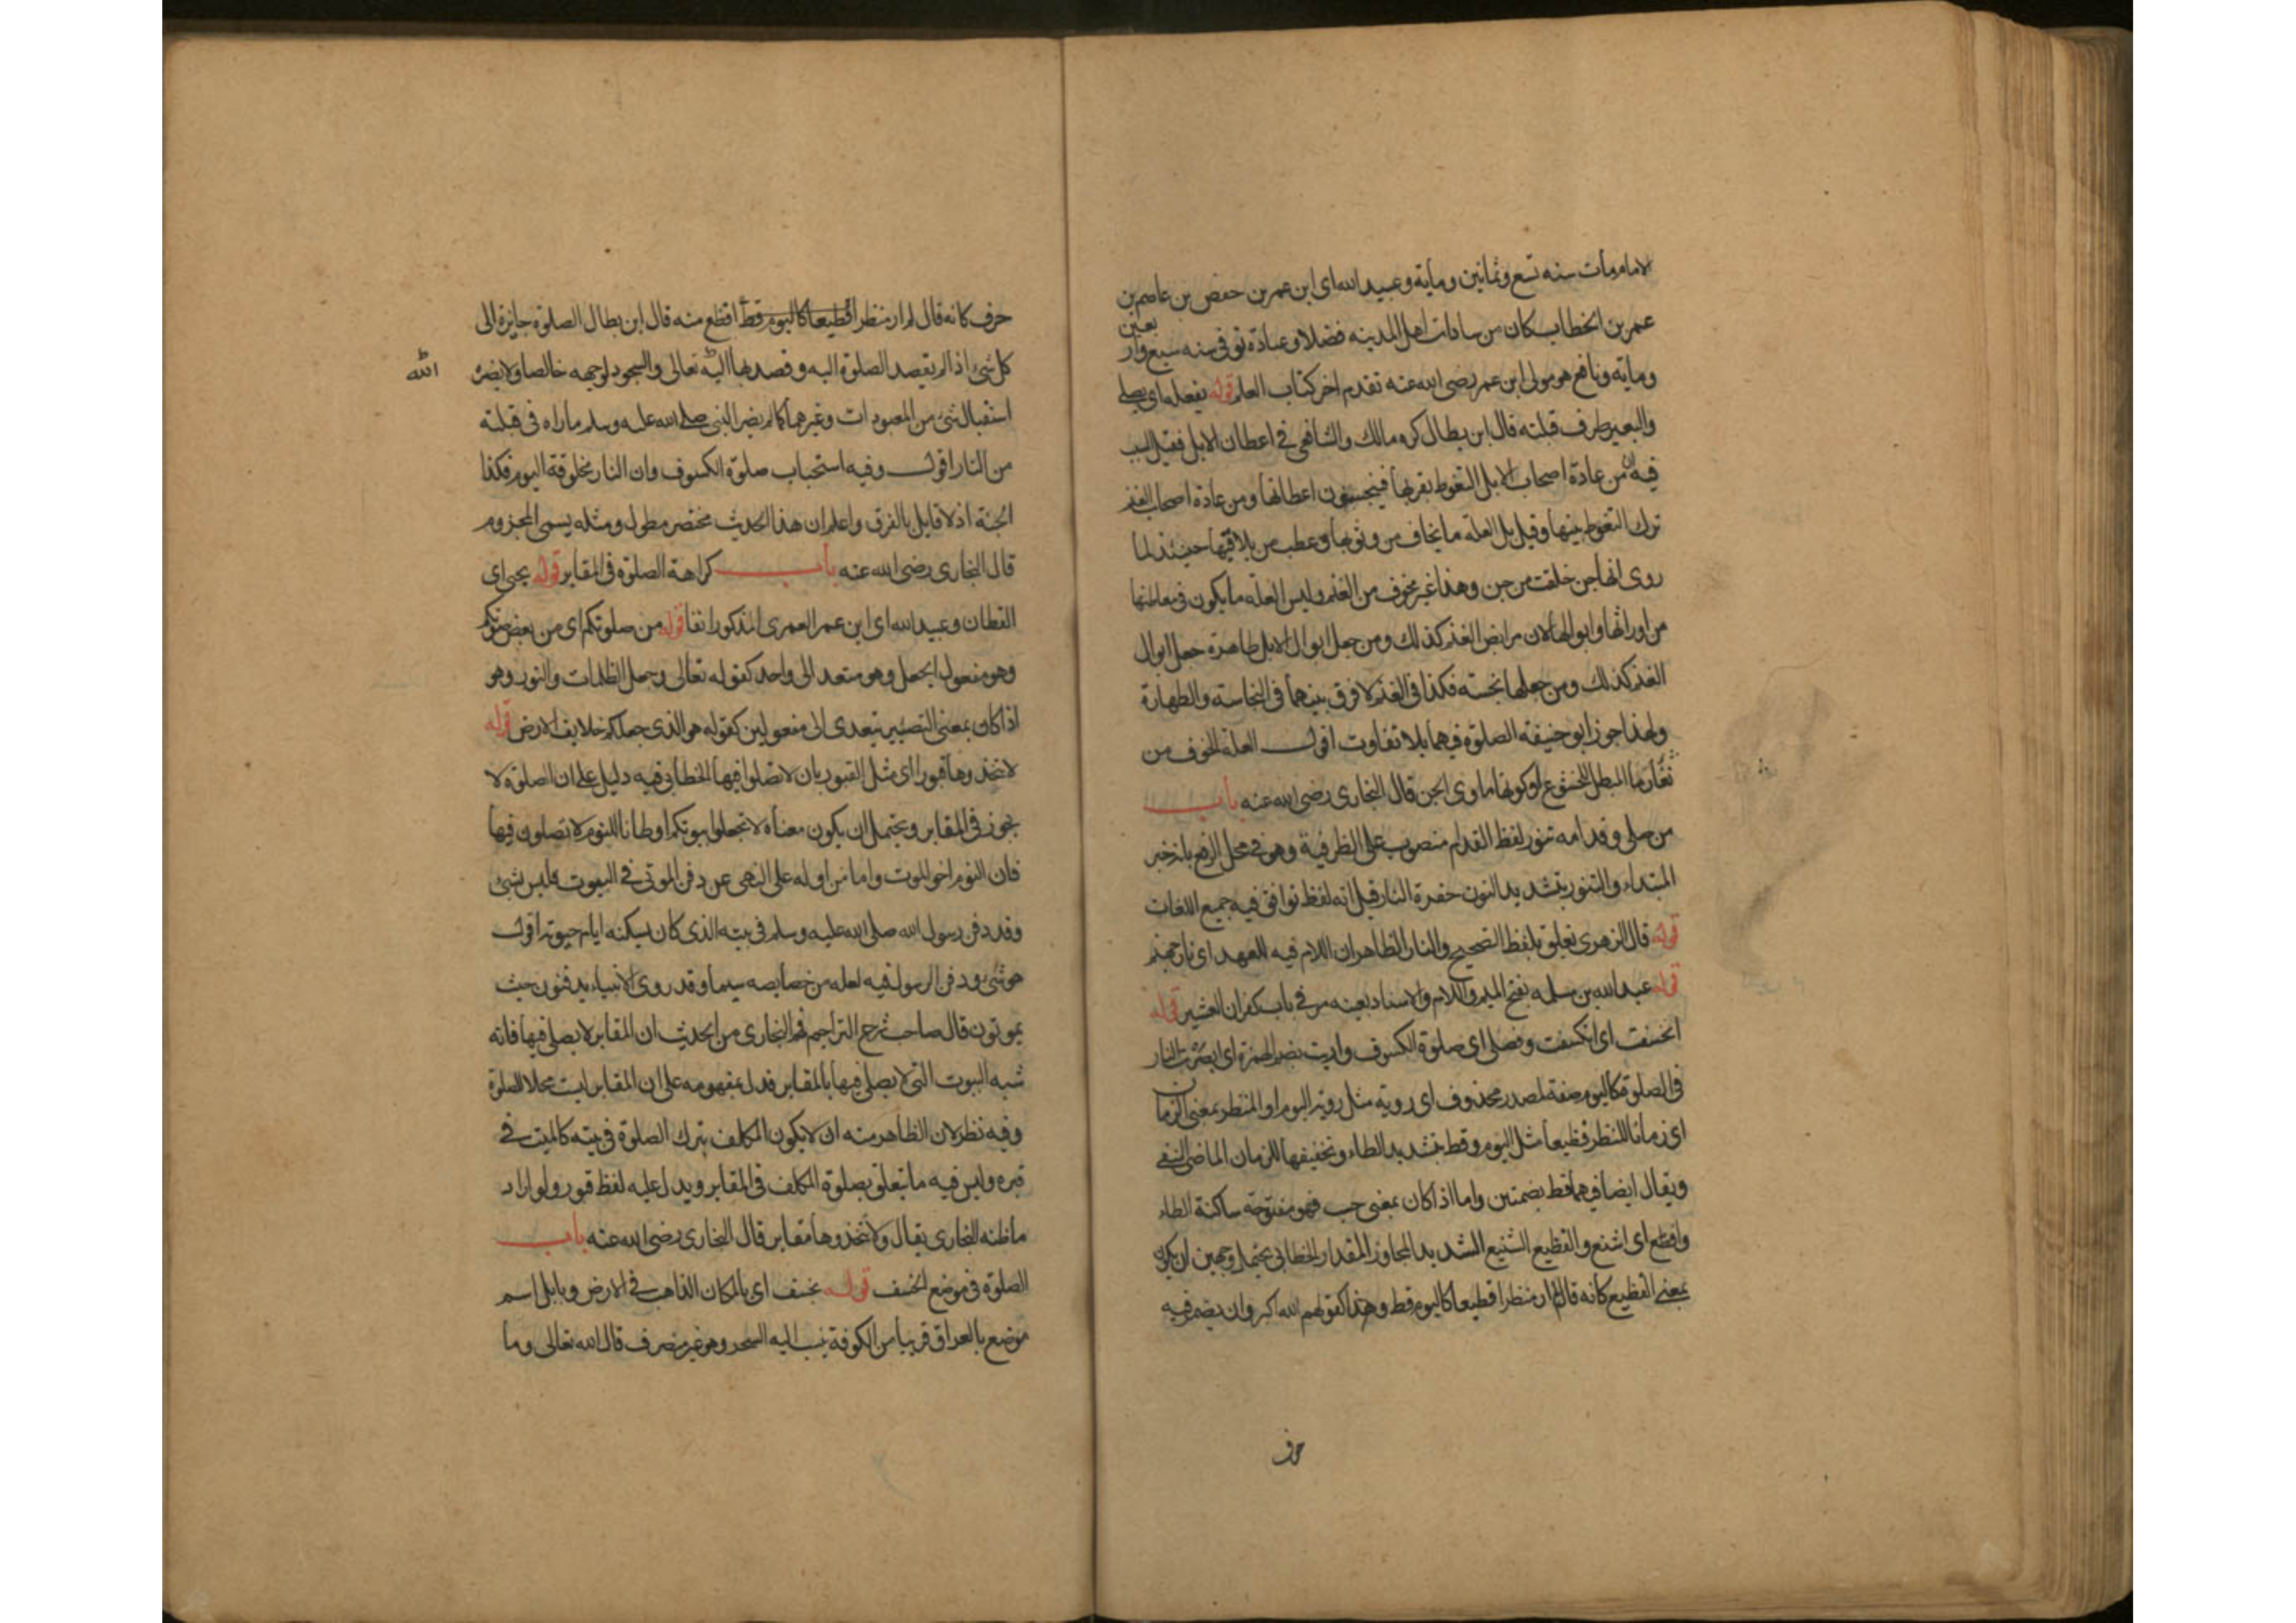 الامام مات سنه تسع وثمانين ومأية وعبيد الله اى ابن عمر بن حفص بن عاصم بن
عمر بن الخطاب كان من سادات اهل المدينه فضلا وعبادة توفى سنه سبع واربعين
ومأية ونافع هو مولى ابن عمر رضى الله عنه تقدم اخر كتاب العلم قوله يفعله اى يصلى
والبعير طرف قبلته قال ابن بطال كره مالك والشافعى فى اعطان الابل فقيل السبب
فيه ان من عادة اصحاب الابل التغوط بقربها فينجسون اعطانها ومن عادة اصحاب الغنم
ترك التغوط بينها وقيل بل العلة ما يخاف من وثوبها وعطب من يلاقيها حينئذ لما
روى انها جن خلقت من جن وهذا غير مخوف من الغنم وليس العلة ما يكون فى معاطنها
من اوراثها وابوالها لان مرابض الغنم كذلك ومن جعل ابوال الابل طاهرة جعل ابوال
الغنم كذلك ومن جعلها نجسته فكذا فى الغنم لا فرق بينهما فى النجاسه والطهارة
ولهذا جوز ابو حنيفه الصلوة فيهما بلا تفاوت اقول العلة الخوف من
نفارها المبطل للخشوع او كونها ماوى الجن قال البخارى رضى الله عنه باب
من صلى وقدامه تنور لفظ القدام منصوب على الظرفية وهو فى محل الرفع بانه خبر
المبتداء والتنور بتشديد النون حفرة النار قيل انه لفظ توافق فيه جميع اللغات
قوله قال الزهرى تعلق بلفظ الصحيح والنار الظاهر ان اللام فيه للعهد اى نار جهنم
قوله عبد الله بن مسلمه بفتح الميم واللام والاسناد بعينه مر فى باب كفران العشير قوله
انخسفت اى انكسفت وفصلى اى صلوة الكسوف واريت بضم الهمزة اى ابصرت النار
فى الصلوة فكاليوم صفة لمصدر محذوف اى روية مثل روية اليوم او المنظر بمعنى الزمان
اى زمانا للنظر فظيعا مثل اليوم وقط بتشديد الطاء وتخفيفها للزمان الماضى المنفى
ويقال ايضا فيهما قط بضمتين واما اذا كان بمعنى حسب فهو مفتوحة ساكنة الطاء
وافظع اى اشنع والفظيع الشنيع الشديد المجاوز المقدار الخطابى يحتمل وجهين ان يكون
بمعنى الفظيع كانه قال لم ار منظرا فظيعا كاليوم قط وهذا كقولهم الله اكبر وان يضمر فيه
حرف
حرف كانه قال لم ار منظرا فظيعا كاليوم قط افظع منه قال ابن بطال الصلوة جايزة الى
كل شئ اذا لم يقصد الصلوة اليه وقصد بها الله تعالى والسجود لوجهه خالصا ولا يضره
الله
استقبال شئ من المعبودات وغيرهما كما لم يضر النبى صلى الله عليه وسلم ما راه فى قبلته
من النار اقول وفيه استحباب صلوة الكسوف وان النار مخلوقة اليوم فكذا
الجنة اذ لا قايل بالفرق واعلم ان هذا الحديث مختصر مطول ومثله يسمى المجزوم
قال البخارى رضى الله عنه باب كراهة الصلوة فى المقابر قوله يحيى اى
القطان وعبيد الله اى ابن عمر العمرى المذكور انفا قوله من صلوتكم اى من بعض صلوتكم
وهو مفعول الجعل وهو متعد الى واحد كقوله تعالى وجعل الظلمات والنور وهو
اذا كان بمعنى التصيير يتعدى الى مفعولين كقوله هو الذى جعلكم خلايف الارض قوله
لا تتخذوها قبورا اى مثل القبور بان لا تصلوا فيها الخطابى فيه دليل على ان الصلوة لا
يجوز فى المقابر ويحتمل ان يكون معناه لا تجعلوا بيوتكم اوطانا للنوم لا تصلون فيها
فان النوم اخو الموت واما من اوله على النهى عن دفن الموتى فى البيوت فليس بشئ
وقد دفن رسول الله صلى الله عليه وسلم فى بيته الذى كان يسكنه ايام حيوته اقول
هو شئ ودفن الرسول فيه لعله من خصايصه سيما وقد روى الانبياء يدفنون حيث
يموتون قال صاحب شرح التراجم فهم البخارى من الحديث ان المقابر لا يصلى فيها فانه
شبه البيوت التى لا يصلى فيها بالمقابر فدل بمفهومه على ان المقابر ليست محلا للصلوة
وفيه نظر لان الظاهر منه ان لا يكون المكلف بترك الصلوة فى بيته كالميت فى
قبره وليس فيه ما يتعلق بصلوة المكلف فى المقابر ويدل عليه لفظ قبور ولو اراد
ما ظنه البخارى يقال ولا تتخذوها مقابر قال البخارى رضى الله عنه باب
الصلوة فى موضع الخسف قوله بخسف اى بالمكان الذاهب فى الارض وبابل اسم
موضع بالعراق قريبا من الكوفة ينسب اليه السحر وهو غير منصرف قال الله تعالى وما